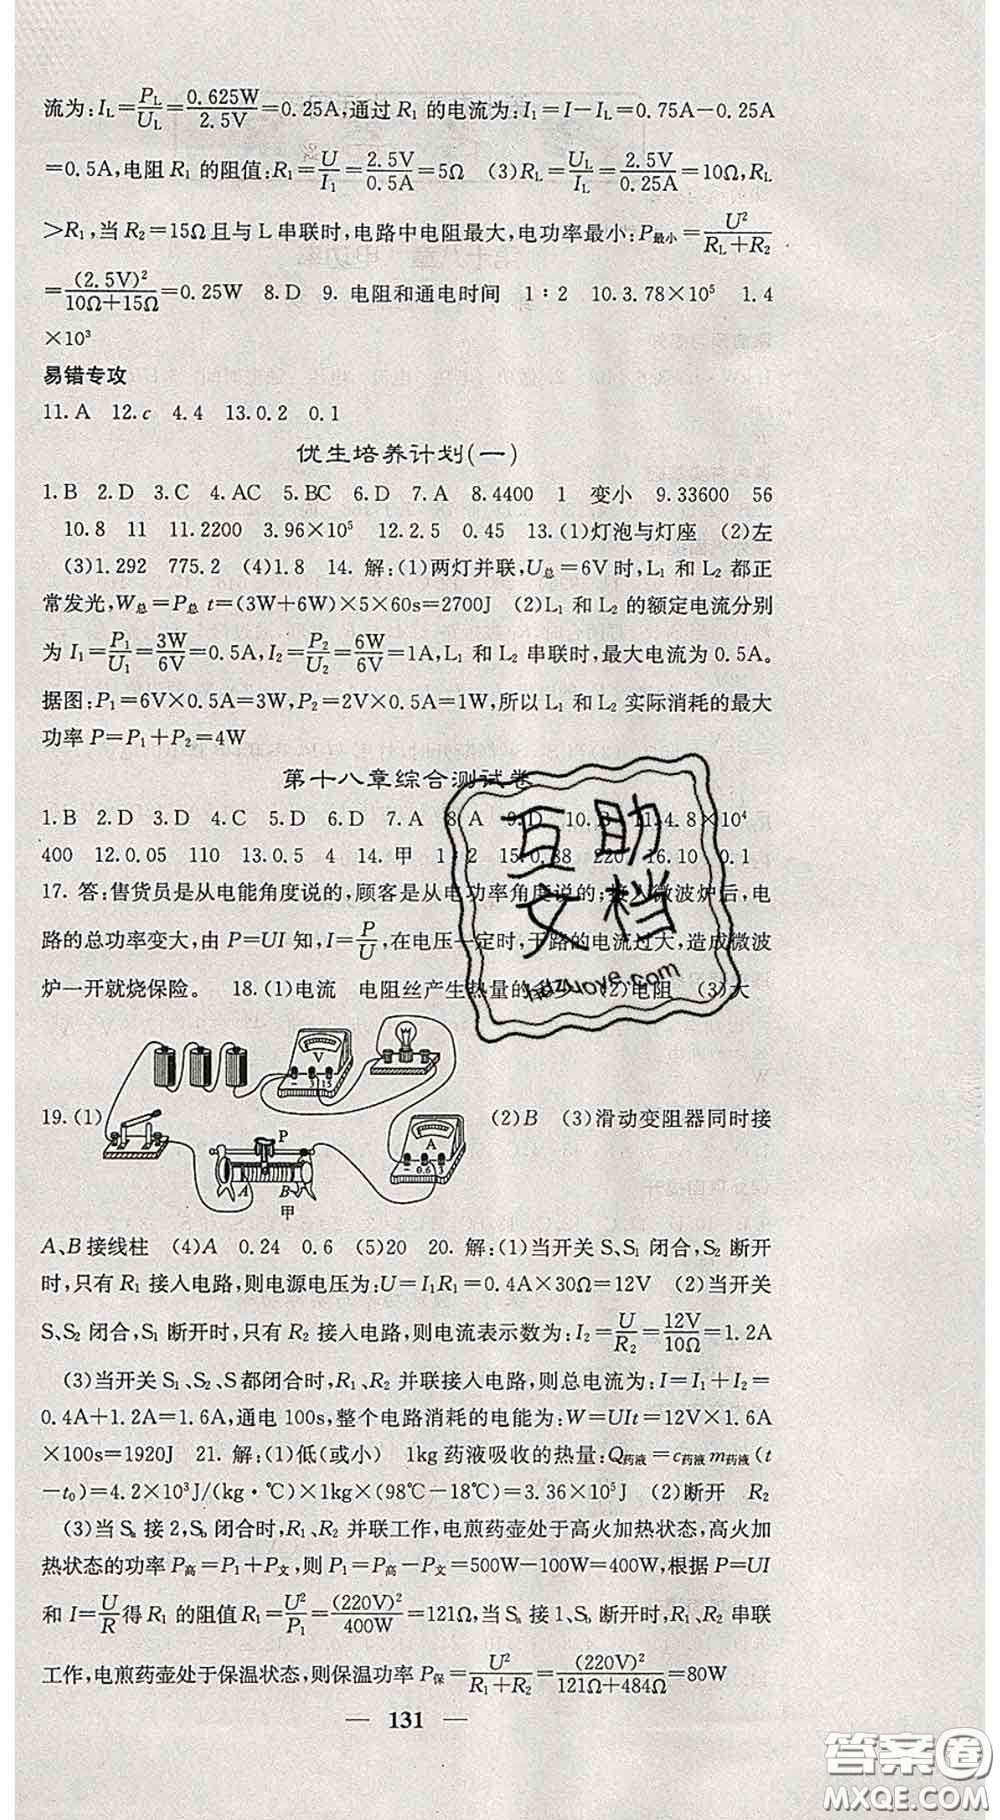 流为:I_L=P_L/U_L=0.625W/2.5V=0.25A,通过 R₁ 的电流为:I₁=I－I_L=0.75A－0.25A
=0.5A,电阻 R₁ 的阻值:R₁=U/I₁=2.5V/0.5A=5Ω (3)R_L=U_L/I_L=2.5V/0.25A=10Ω,R_L
>R₁,当 R₂=15Ω且与 L 串联时,电路中电阻最大,电功率最小:P最小=U²/(R_L+R₂)
=(2.5V)²/(10Ω+15Ω)=0.25W 8.D 9. 电阻和通电时间 1∶2 10.3.78×10⁵ 1.4
×10³
易错专攻
11.A 12.c 4.4 13.0.2 0.1
优生培养计划(一)
1.B 2.D 3.C 4.AC 5.BC 6.D 7.A 8.4400 1 变小 9.33600 56
10.8 11 11.2200 3.96×10⁵ 12.2.5 0.45 13.(1)灯泡与灯座 (2)左
(3)1.292 775.2 (4)1.8 14. 解:(1)两灯并联,U总=6V 时,L₁ 和 L₂ 都正
常发光,W总=P总 t=(3W+6W)×5×60s=2700J (2)L₁ 和 L₂ 的额定电流分别
为 I₁=P₁/U₁=3W/6V=0.5A,I₂=P₂/U₂=6W/6V=1A,L₁ 和 L₂ 串联时,最大电流为 0.5A。
据图:P₁=6V×0.5A=3W,P₂=2V×0.5A=1W,所以 L₁ 和 L₂ 实际消耗的最大
功率 P=P₁+P₂=4W
第十八章综合测试卷
1.B 2.D 3.A 4.C 5.D 6.D 7.A 8.A 9.D 10.B 11.4.8×10⁴
400 12.0.05 110 13.0.5 4 14.甲 1∶2 15.0.88 220 16.10 0.1
17. 答:售货员是从电能角度说的,顾客是从电功率角度说的;接入微波炉后,电
路的总功率变大,由 P=UI 知,I=P/U,在电压一定时,干路的电流过大,造成微波
炉一开就烧保险。 18.(1)电流 电阻丝产生热量的多少 (2)电阻 (3)大
V
－ 3 15
19.(1)
P
A B
甲
A
－ 0.6 3
(2)B (3)滑动变阻器同时接
A、B接线柱 (4)A 0.24 0.6 (5)20 20. 解:(1)当开关 S、S₁ 闭合,S₂ 断开
时,只有 R₁ 接入电路,则电源电压为:U=I₁R₁=0.4A×30Ω=12V (2)当开关
S、S₂ 闭合,S₁ 断开时,只有 R₂ 接入电路,则电流表示数为:I₂=U/R₂=12V/10Ω=1.2A
(3)当开关 S₁、S₂、S都闭合时,R₁、R₂ 并联接入电路,则总电流为:I=I₁+I₂=
0.4A+1.2A=1.6A,通电 100s,整个电路消耗的电能为:W=UIt=12V×1.6A
×100s=1920J 21. 解:(1)低(或小) 1kg 药液吸收的热量:Q药液=c药液m药液(t
－t₀)=4.2×10³J/(kg·℃)×1kg×(98℃－18℃)=3.36×10⁵J (2)断开 R₂
(3)当 Sₐ 接 2,S_b 闭合时,R₁、R₂ 并联工作,电煎药壶处于高火加热状态,高火加
热状态的功率 P高=P₁+P文,则 P₁=P高－P文=500W-100W=400W,根据 P=UI
和 I=U/R得 R₁ 的阻值 R₁=U²/P₁=(220V)²/400W=121Ω,当 Sₐ 接 1、S_b 断开时,R₁、R₂ 串联
工作,电煎药壶处于保温状态,则保温功率 P保=U²/(R₁+R₂)=(220V)²/(121Ω+484Ω)=80W
— 131 —
互助
文档
hdzuoye.com
答案圈
MXQE.COM